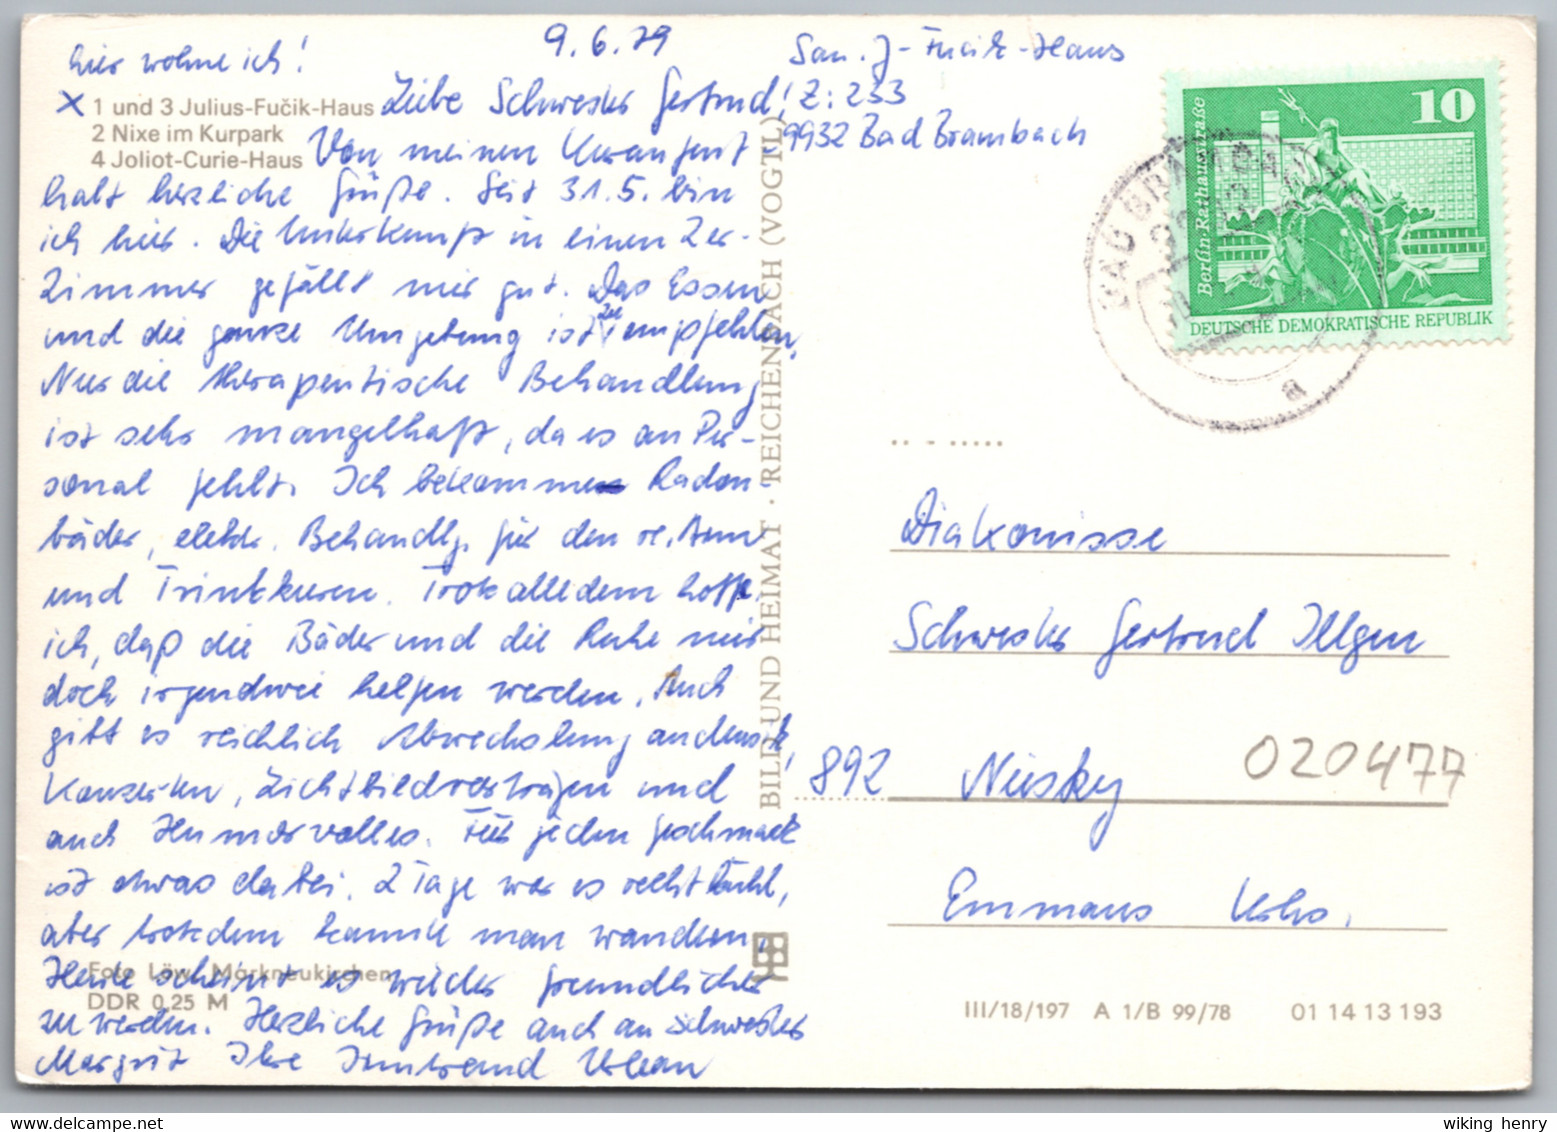 hier wohne ich!
9.6.79
San. J-Fucik-Haus
Z: 233
9932 Bad Brambach
X 1 und 3 Julius-Fučik-Haus
2 Nixe im Kurpark
4 Joliot-Curie-Haus
Liebe Schwester Gertrud!
Von meinen Kuraufent-
halt herzliche Grüße. Seit 31.5. bin
ich hier. Die Unterkunft in einen 2er-
Zimmer gefällt mir gut. Das Essen
und die ganze Umgebung ist zu empfehlen,
Nur die therapeutische Behandlung
ist sehr mangelhaft, da es an Per-
sonal fehlt. Ich bekomme Radon-
bäder, elektr. Behandlg. für den re. Arm
und Trinkkuren. Trotz alledem hoffe
ich, daß die Bäder und die Ruhe mir
doch irgendwie helfen werden. Auch
gibt es reichlich Abwechslung an
Konzerten, Lichtbildvorträgen und
auch Humorvolles. Für jeden Geschmack
ist etwas dabei. 2 Tage war es recht kühl,
aber trotzdem kann man wandern.
Heute scheint es wieder freundlicher
zu werden. Herzliche Grüße auch an Schwester
Margrit Ihre Irmtraud Urban
Foto Löw, Markneukirchen
DDR 0,25 M
BILD UND HEIMAT · REICHENBACH (VOGTL)
10
Berlin-Rathausstraße
DEUTSCHE DEMOKRATISCHE REPUBLIK
BAD BRAMBACH
a
Diakonisse
Schwester Gertrud Illgen
892 Niesky
020477
Emmaus Krhs.
III/18/197 A 1/B 99/78 01 14 13 193
wiking henry